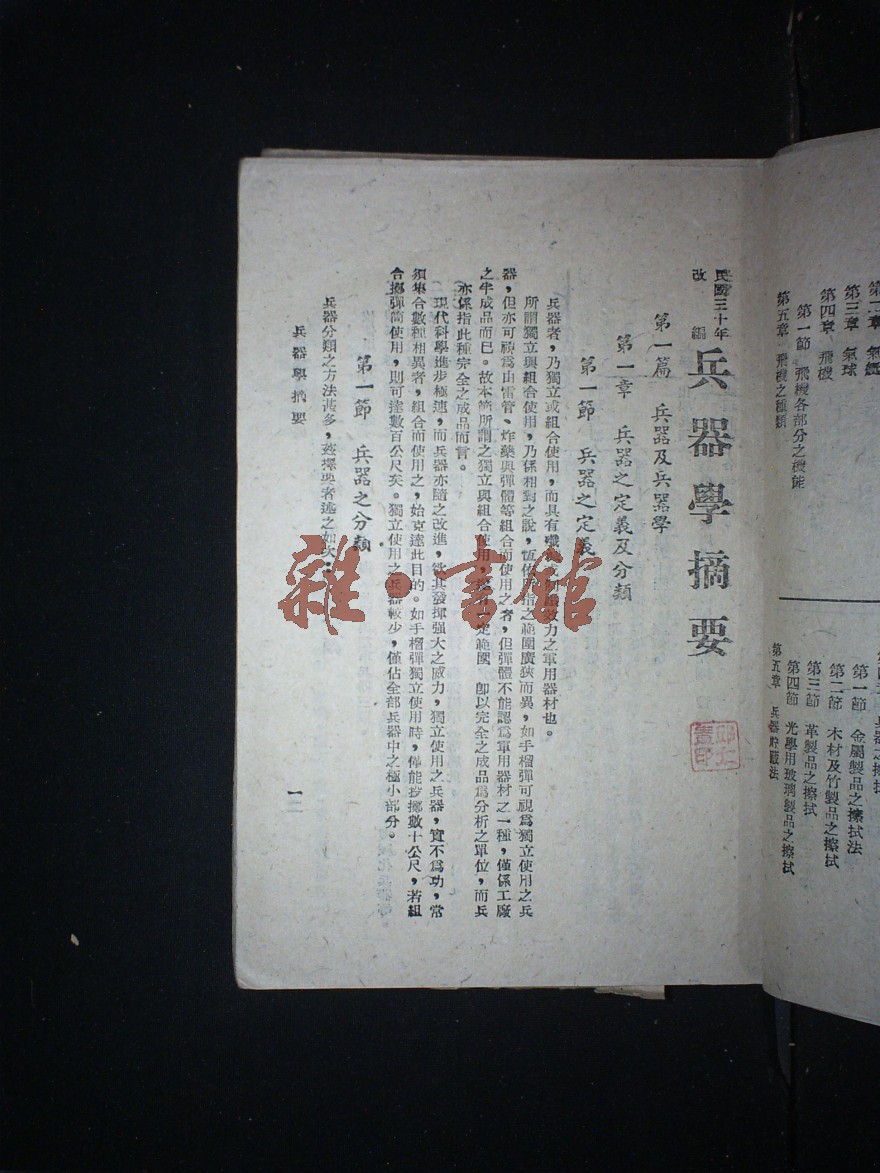 第三章 氣球
第四章 飛機
第一節 飛機各部分之機能
第五章 飛機之種類
第一節 金屬製品之擦拭法
第二節 木材及竹製品之擦拭
第三節 革製品之擦拭
第四節 光學用玻璃製品之擦拭
第五章 兵器貯藏法
民國三十年
改編
兵器學摘要
第一篇 兵器及兵器學
第一章 兵器之定義及分類
第一節 兵器之定義
兵器者,乃獨立或組合使用,而具有戰鬥效力之軍用器材也。
所謂獨立與組合使用,乃係相對之說,恆依所指之範圍廣狹而異,如手榴彈可視爲獨立使用之兵
器,但亦可視爲由雷管、炸藥與彈體等組合而使用之者,但彈體不能認爲軍用器材之一種,僅係工廠
之半成品而已。故本篇所謂之獨立與組合使用,一定範圍 卽以完全之成品爲分析之單位,而兵
亦係指此種完全之成品而言。
現代科學進步極速,而兵器亦隨之改進,欲其發揮强大之威力,獨立使用之兵器,實不爲功,常
須集合數種相異者,組合而使用之,始克達此目的。如手榴彈獨立使用時,僅能投擲數十公尺,若組
合擲彈筒使用,則可達數百公尺矣。獨立使用之兵器較少,僅佔全部兵器中之極小部分。
第一節 兵器之分類
兵器分類之方法甚多,茲擇要者述之如次:
兵器學摘要
一
雜·書館